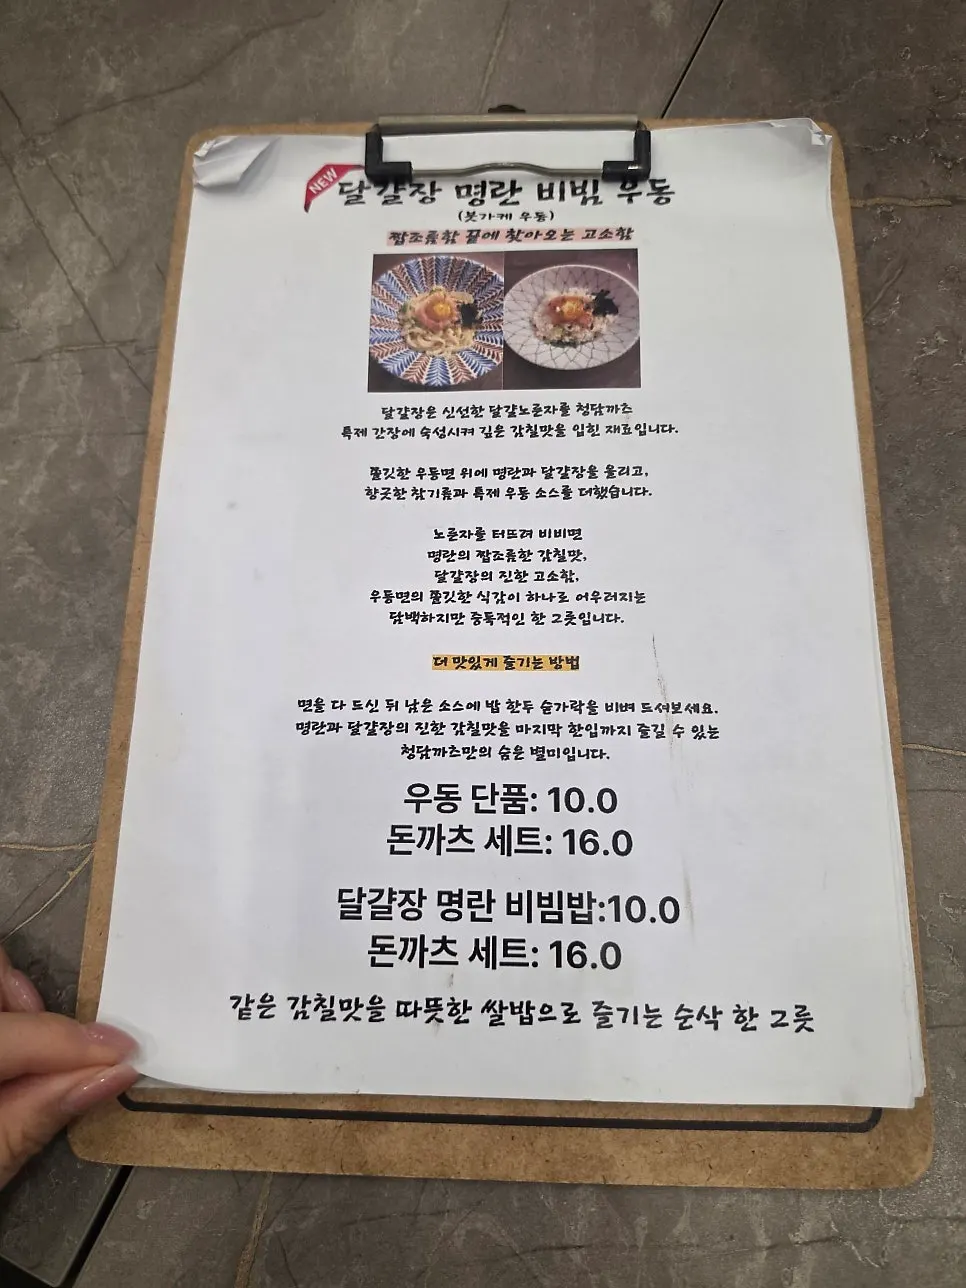 NEW
달걀장 명란 비빔 우동
(붓가케 우동)
짭조름함 끝에 찾아오는 고소함
달걀장은 신선한 달걀노른자를 청담까츠
특제 간장에 숙성시켜 깊은 감칠맛을 입힌 재료입니다.
쫄깃한 우동면 위에 명란과 달걀장을 올리고,
향긋한 참기름과 특제 우동 소스를 더했습니다.
노른자를 터뜨려 비비면
명란의 짭조름한 감칠맛,
달걀장의 진한 고소함,
우동면의 쫄깃한 식감이 하나로 어우러지는
담백하지만 중독적인 한 그릇입니다.
더 맛있게 즐기는 방법
면을 다 드신 뒤 남은 소스에 밥 한두 숟가락을 비벼 드셔보세요.
명란과 달걀장의 진한 감칠맛을 마지막 한입까지 즐길 수 있는
청담까츠만의 숨은 별미입니다.
우동 단품: 10.0
돈까츠 세트: 16.0
달걀장 명란 비빔밥:10.0
돈까츠 세트: 16.0
같은 감칠맛을 따뜻한 쌀밥으로 즐기는 순삭 한 그릇